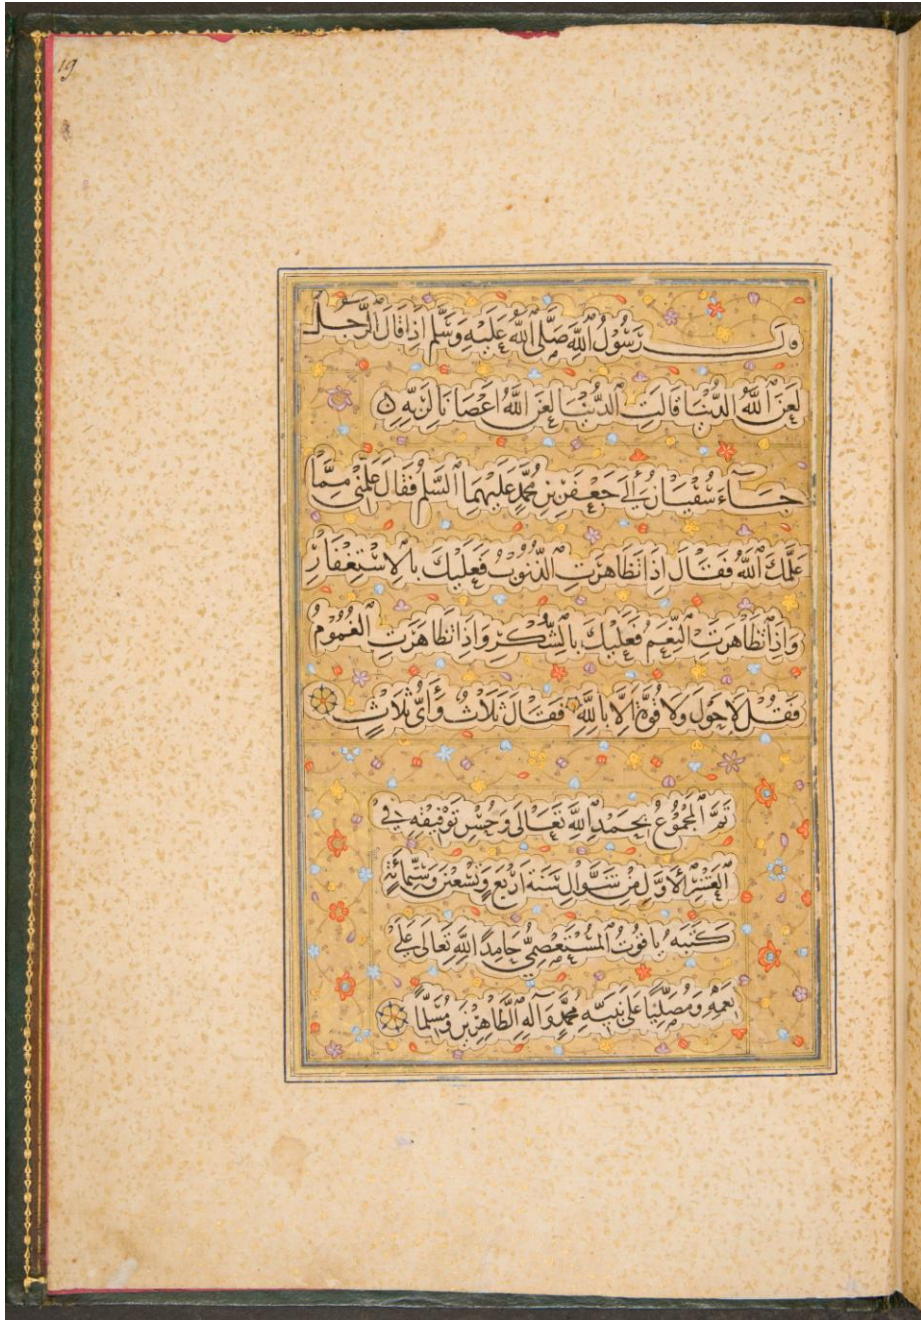 19
قال رَسُولُ اللهِ صَلَّى اللهُ عَلَيْهِ وَسَلَّم اِذَا قَالَ الرَّجُلُ
لَعَنَ اللهُ الدُّنْيَا قَالَتِ الدُّنْيَا لَعَنَ اللهُ اَعْصَانَا لِرَبِّهِ ن
جَاءَ سُفْيَانُ اِلَى جَعْفَرِ بْنِ مُحَمَّدٍ عَلَيْهِمَا السَّلَمُ فَقَالَ عَلِّمْنِي مِمَّا
عَلَّمَكَ اللهُ فَقَالَ اِذَا تَظَاهَرَتِ الذُّنُوبُ فَعَلَيْكَ بِالاِسْتِغْفَارِ
وَاِذَا تَظَاهَرَتِ النِّعَمُ فَعَلَيْكَ بِالشُّكْرِ وَاِذَا تَظَاهَرَتِ الغُمُومُ
فَقُلْ لاَ حَوْلَ وَلاَ قُوَّةَ اِلاَّ بِاللهِ فَقَالَ ثَلاَثٌ وَاَىُّ ثَلاَثٍ
تَمَّ المَجْمُوعُ بِحَمْدِ اللهِ تَعَالَى وَحُسْنِ تَوْفِيقِهِ فِي
العَشْرِ الاَوَّلِ مِنْ شَوَّالِ سَنَةَ اَرْبَعَ وَتِسْعِينَ وَسِتِّمِائَةٍ
كَتَبَهُ يَاقُوتُ المُسْتَعْصِمِيُّ حَامِدًا للهِ تَعَالَى عَلَى
نِعَمِهِ وَمُصَلِّيًا عَلَى نَبِيِّهِ مُحَمَّدٍ وَآلِهِ الطَّاهِرِينَ وَمُسَلِّمًا